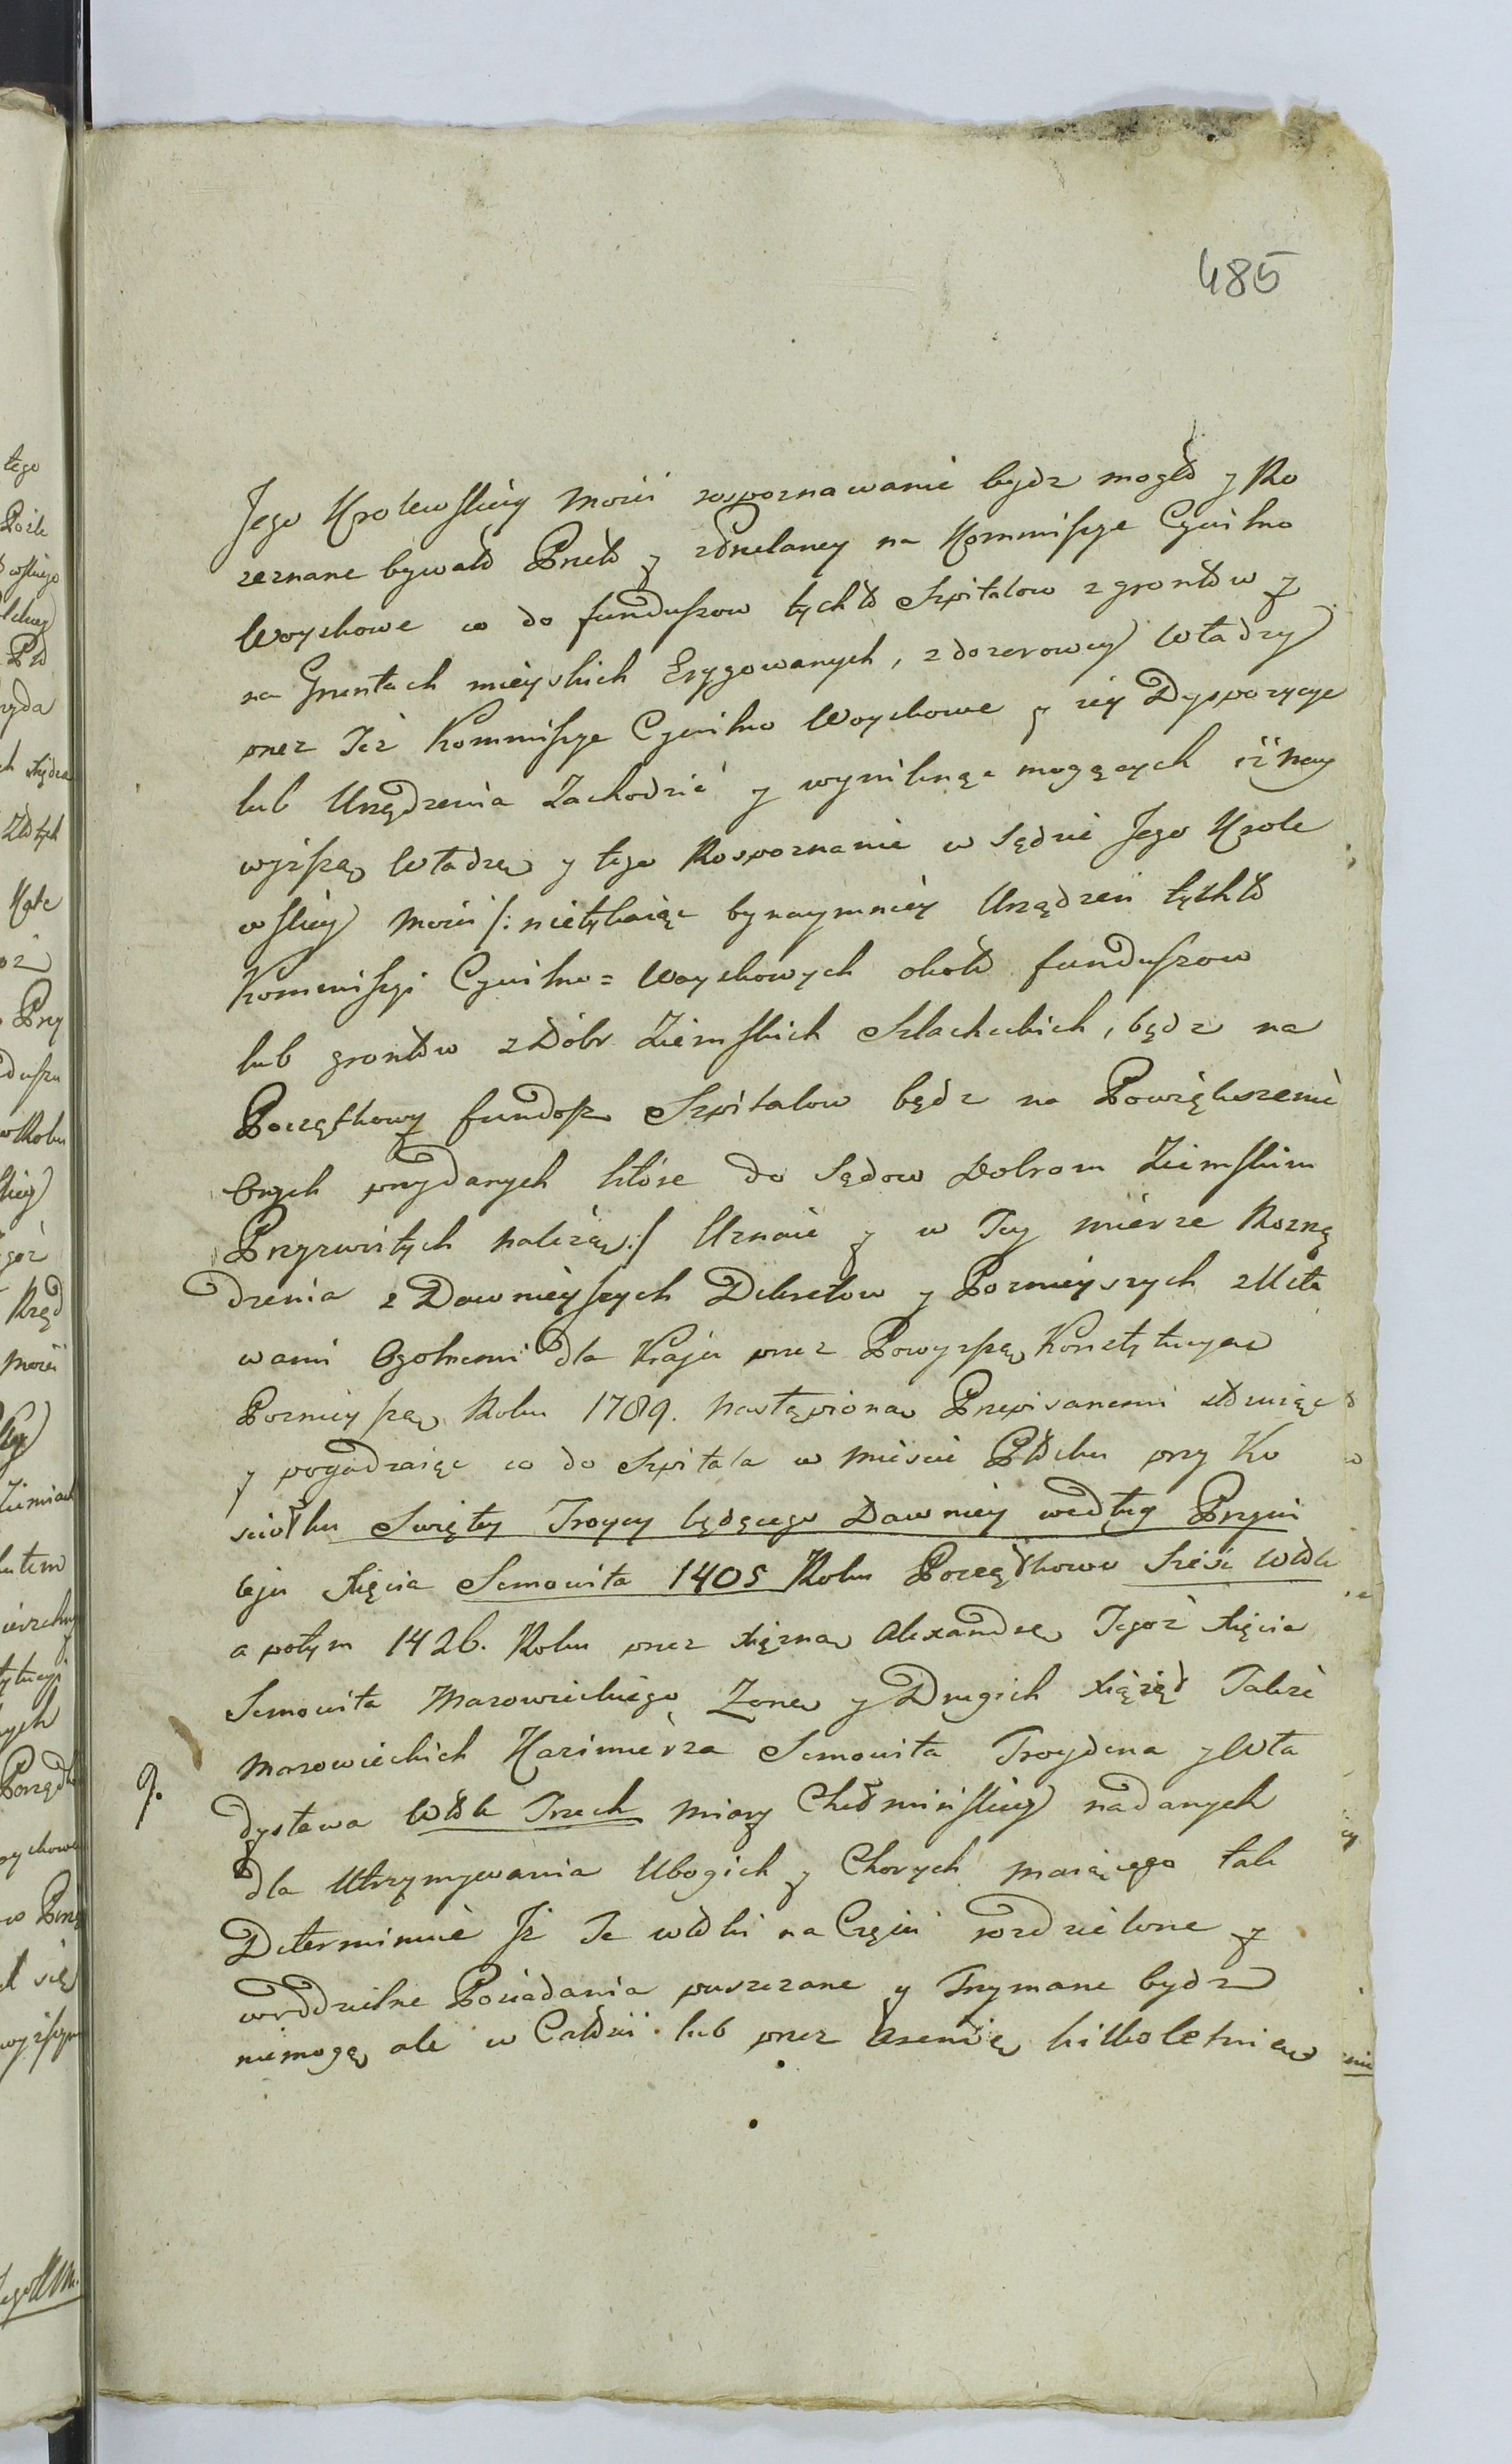 485
Jego Krolewskiey Mości rospoznawanie bydz mogło y Ro
zeznane bywało Przeto y zdzielaney na Kommissye Cywilno
Woyskowe co do funduszow tychto Szpitalow z grontow y
na Gruntach mieyskich Erygowanych, z dozorowey Władzy
przez Też Kommissye Cywilno Woyskowe y iey Dyspozycye
lub Urządzenia Zachodzić y wyniknąc mogących iż nay
wyższą Władzę y tego Rospoznanie w Sądzie Jego Krole
wskiey Mości /: nietykaiąc bynaymniey Urządzeń tychto
Kommissyi Cywilno = Woyskowych około funduszow
lub grontow z Dóbr Ziemskich Szlacheckich, bądz na
Początkowy fundosz Szpitalow bądz na Powiększenie
Onych przydanych które do Sądow Dobrom Ziemskim
Przyzwoitych należą :/ Uznaie y w Tey mierze Rozrzą
dzenia z Dawnieyszych Dekretow y Poznieyszych z Usta
wami Ogolnemi dla Kraju przez Powyższą Konstytucyą
Poznieyszą Roku 1789. nastąpioną Przepisanemi
y pogadzaiąc co do Szpitala w mieście Płocku przy Ko
sciołku Swiętey Troycy będącego Dawniey według Przywi
leju Xięcia Semowita 1405 Roku Początkowo Sześć Włók
a potym 1426. Roku przez Xiężną Alexandrę Tegoż Xięcia
Semowita Mazowieckiego Zonę y Drugich Xiążąt Także
Mazowieckich Kazimierza Semowita Troydena y Wła
9.
dysława Włók Trzech miary Chełmińskiey nadanych
dla Utrzymywania Ubogich y Chorych maiącego tak
Determinuie Iż Te włoki na Części rozdzielone y
woddzielne Posiadania puszczane y Trzymane bydz
niemogą ale w Całości lub przez Arendę kilkoletnią